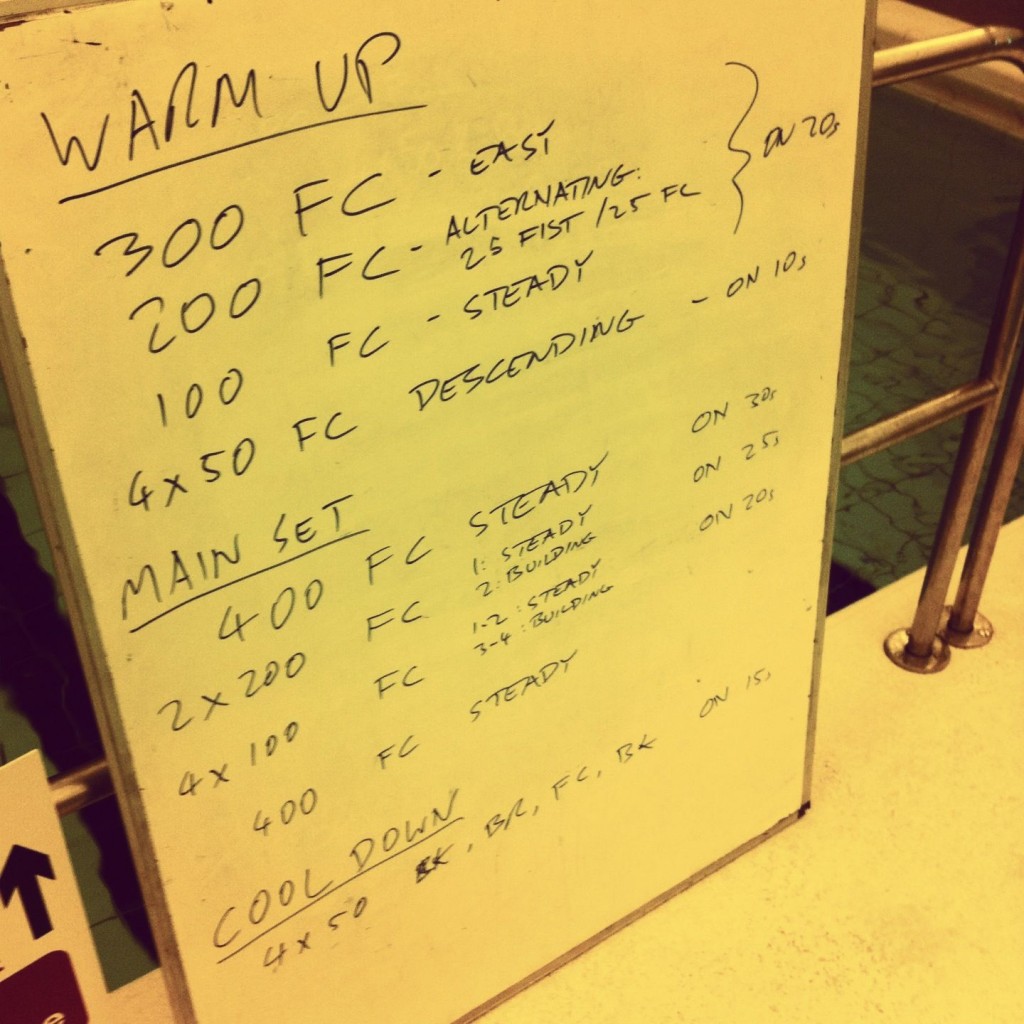 WARM UP
300 FC - EASY
200 FC - ALTERNATING:
25 FIST / 25 FC
100 FC - STEADY
ON 20s
4 x 50 FC DESCENDING - ON 10s
MAIN SET
400 FC STEADY ON 30s
2 x 200 FC 1: STEADY ON 25s
2: BUILDING
4 x 100 FC 1-2: STEADY ON 20s
3-4: BUILDING
400 FC STEADY
COOL DOWN
4 x 50 BK, BR, FC, BK ON 15s